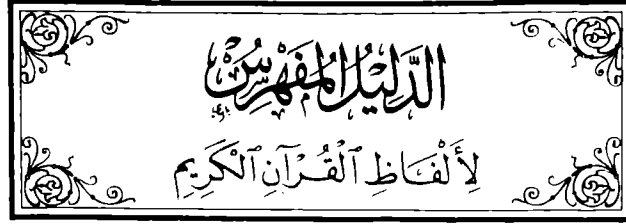 الدَّلِيْلُ المُفَهْرَسُ
لِأَلْفَاظِ ٱلْقُرْآنِ ٱلْكَرِيمِ